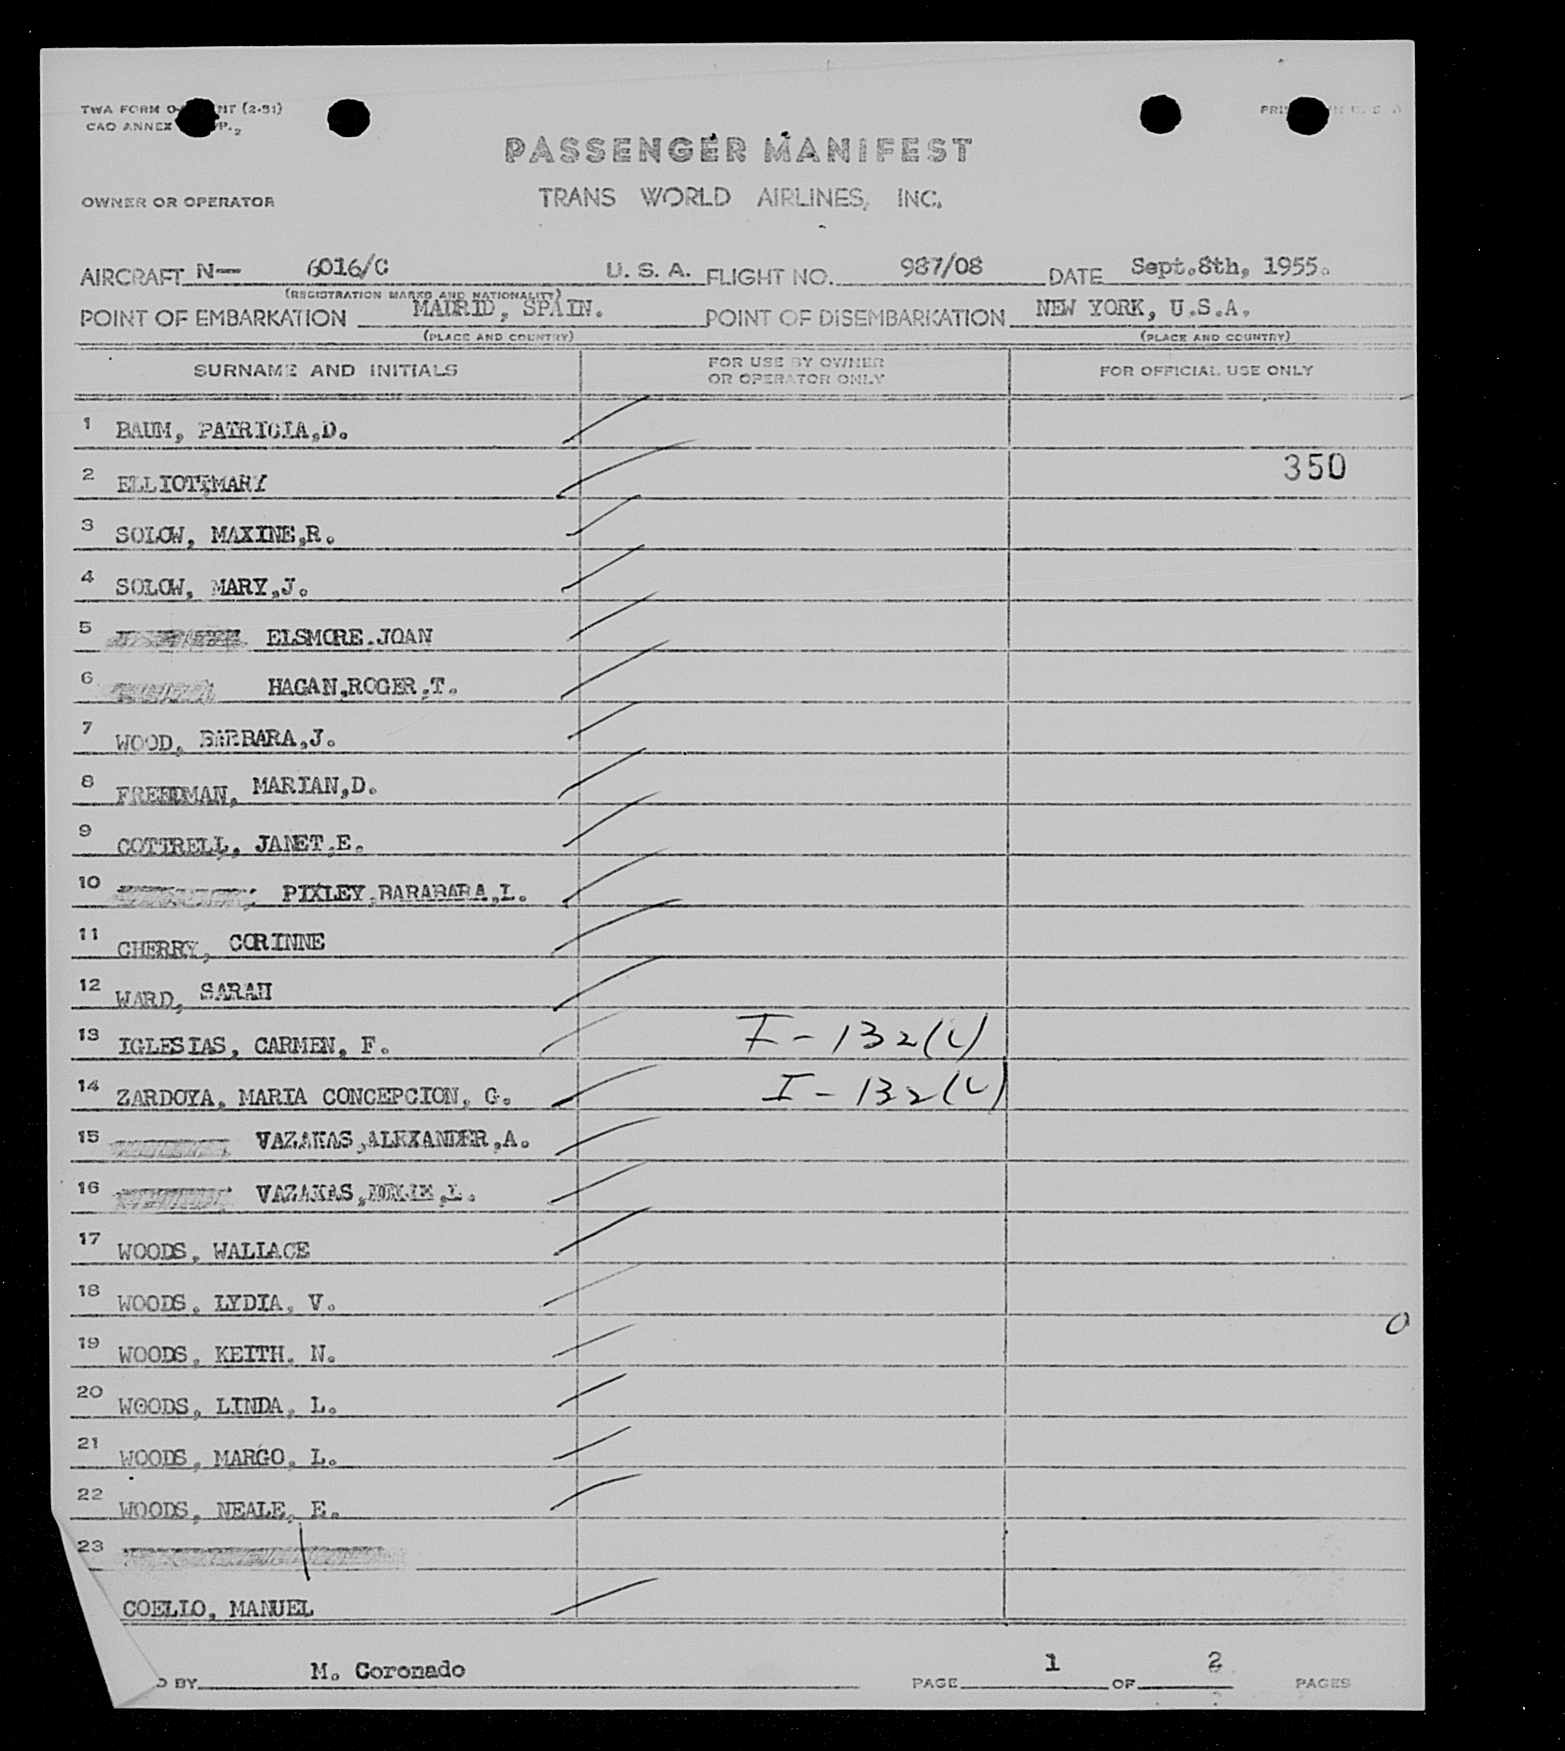 TWA FORM O- NT (2-51)
CAO ANNEX P. 2
PASSENGER MANIFEST
TRANS WORLD AIRLINES, INC.
OWNER OR OPERATOR
AIRCRAFT N— 6016/C U. S. A. FLIGHT NO. 987/08 DATE Sept.8th, 1955.
(REGISTRATION MARKS AND NATIONALITY)
POINT OF EMBARKATION MADRID, SPAIN. POINT OF DISEMBARKATION NEW YORK, U.S.A.
(PLACE AND COUNTRY) (PLACE AND COUNTRY)
SURNAME AND INITIALS FOR USE BY OWNER OR OPERATOR ONLY FOR OFFICIAL USE ONLY
1 BAUM, PATRICIA,D.
350
2 ELLIOTT,MARY
3 SOLOW, MAXINE,R.
4 SOLOW, MARY,J.
5 ELSMORE.JOAN
6 HAGAN,ROGER,T.
7 WOOD, BARBARA,J.
8 FREEDMAN, MARIAN,D.
9 COTTRELL, JANET,E.
10 PIXLEY,BARABARA,L.
11 CHERRY, CORINNE
12 WARD, SARAH
13 IGLESIAS, CARMEN, F. I-132(L)
14 ZARDOYA, MARIA CONCEPCION, G. I-132(L)
15 VAZAKAS,ALEXANDER,A.
16 VAZAKAS, L.
17 WOODS, WALLACE
18 WOODS, LYDIA, V.
19 WOODS, KEITH, N.
20 WOODS, LINDA, L.
21 WOODS, MARGO, L.
22 WOODS, NEALE, E.
23
COELLO, MANUEL
D BY M. Coronado PAGE 1 OF 2 PAGES